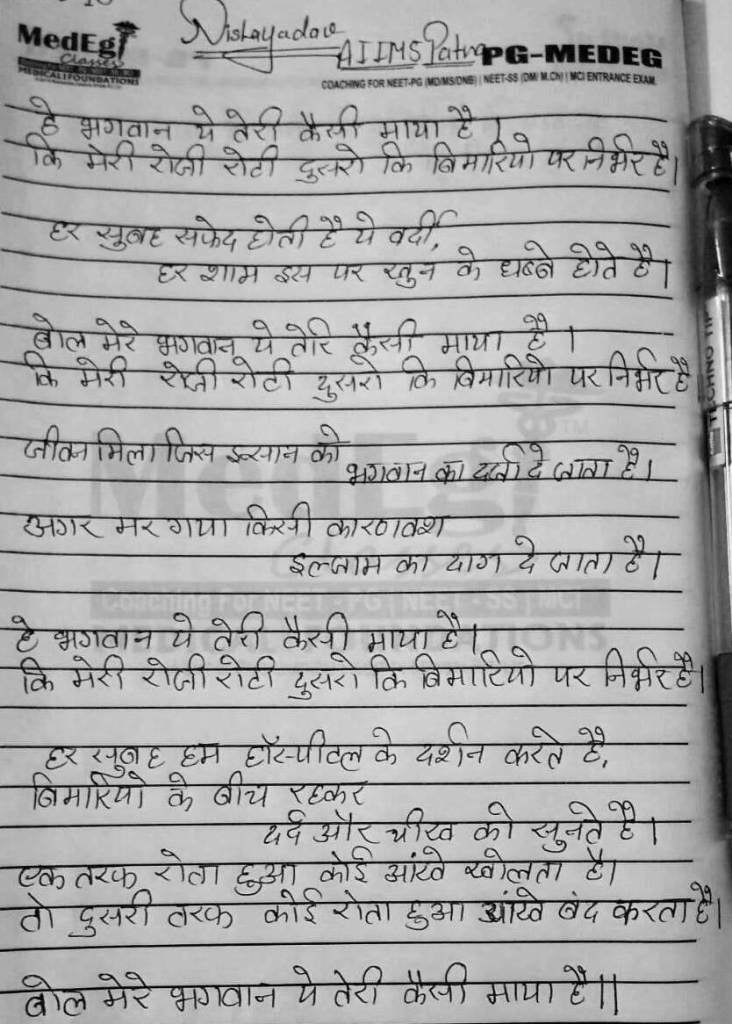 Nishayadav
AIIMS Patna
MedEg
Classes
MEDICAL FOUNDATIONS
PG-MEDEG
COACHING FOR NEET-PG (MD/MS/DNB) | NEET-SS (DM/ M.CH) | MCI ENTRANCE EXAM.
हे भगवान ये तेरी कैसी माया है ।
कि मेरी रोजी रोटी दुसरो कि बिमारियो पर निर्भर है।
हर सुबह सफेद होती है ये वर्दी,
हर शाम इस पर खुन के धब्बे होते है।
बोल मेरे भगवान ये तेरि कैसी माया है ।
कि मेरी रोजी रोटी दुसरो कि बिमारियो पर निर्भर है
जीवन मिला जिस इन्सान को
भगवान का दर्जा दे जाता है।
अगर मर गया किसी कारणवश
इल्जाम का दाग दे जाता है।
हे भगवान ये तेरी कैसी माया है।
कि मेरी रोजी रोटी दुसरो कि बिमारियो पर निर्भर है।
हर सुबह हम हॉस्पीटल के दर्शन करते है,
बिमारियो के बीच रहकर
दर्द और चीख को सुनते है।
एक तरफ रोता हुआ कोई आंखे खोलता है।
तो दुसरी तरफ कोई रोता हुआ आंखे बंद करता है।
बोल मेरे भगवान ये तेरी कैसी माया है॥
MedEg
TM
Classes
Coaching For NEET - PG | NEET - SS | MCI
MEDICAL FOUNDATIONS
TECHNO TIP